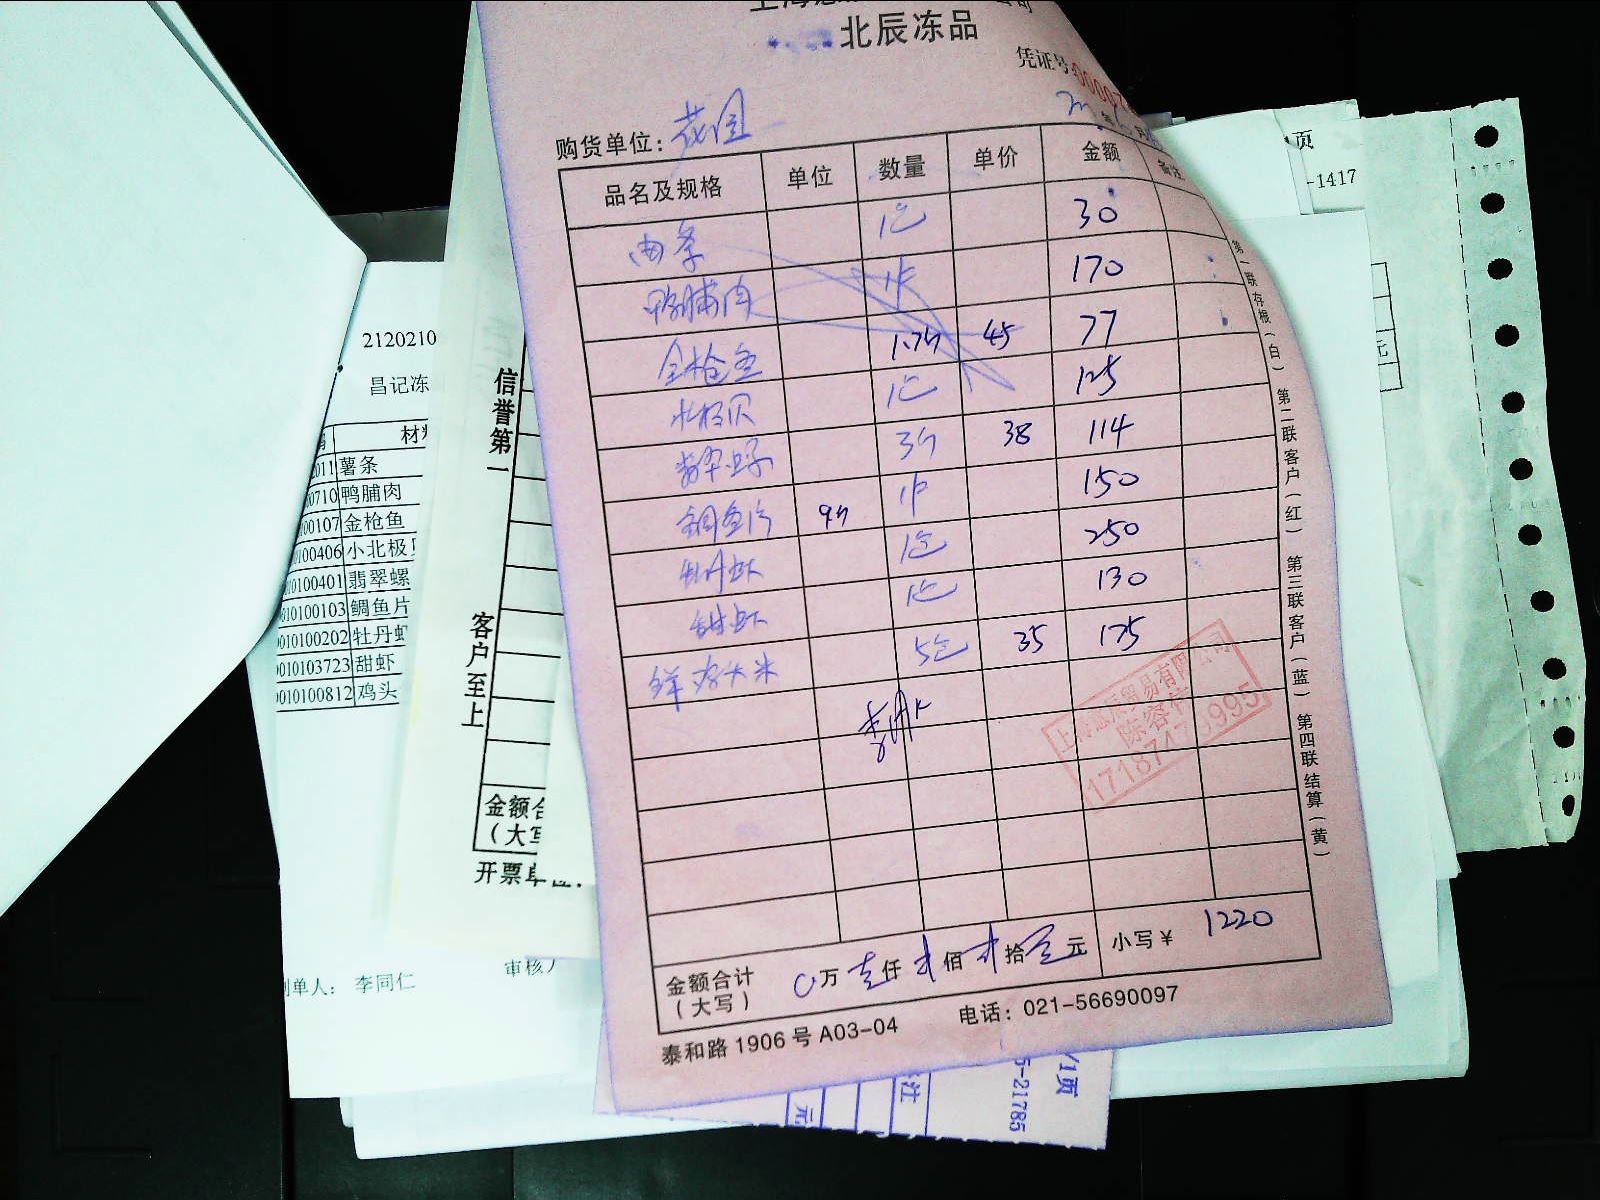 北辰冻品
凭证号
购货单位：花园
品名及规格 单位 数量 单价 金额 备注
薯条 1包 30
鸭脯肉 1件 170
金枪鱼 1.7斤 45 77
北极贝 1包 125
翡翠螺 3斤 38 114
鲷鱼片 9斤 1件 150
牡丹虾 1包 250
甜虾 1包 130
5包 35 175
陈容
金额合计（大写） 0万壹仟贰佰贰拾零元 小写￥ 1220
泰和路 1906 号 A03-04 电话：021-56690097
第一联存根（白） 第二联客户（红） 第三联客户（蓝） 第四联结算（黄）
2120210
昌记冻
材
2011 薯条
00710 鸭脯肉
00107 金枪鱼
0100406 小北极
010100401 翡翠螺
010100103 鲷鱼片
0010100202 牡丹虾
0010103723 甜虾
0010100812 鸡头
制单人： 李同仁
审核人
信誉第一
客户至上
金额合
（大写
开票单位：
页
-1417
元
元
注
5-21785
/1页